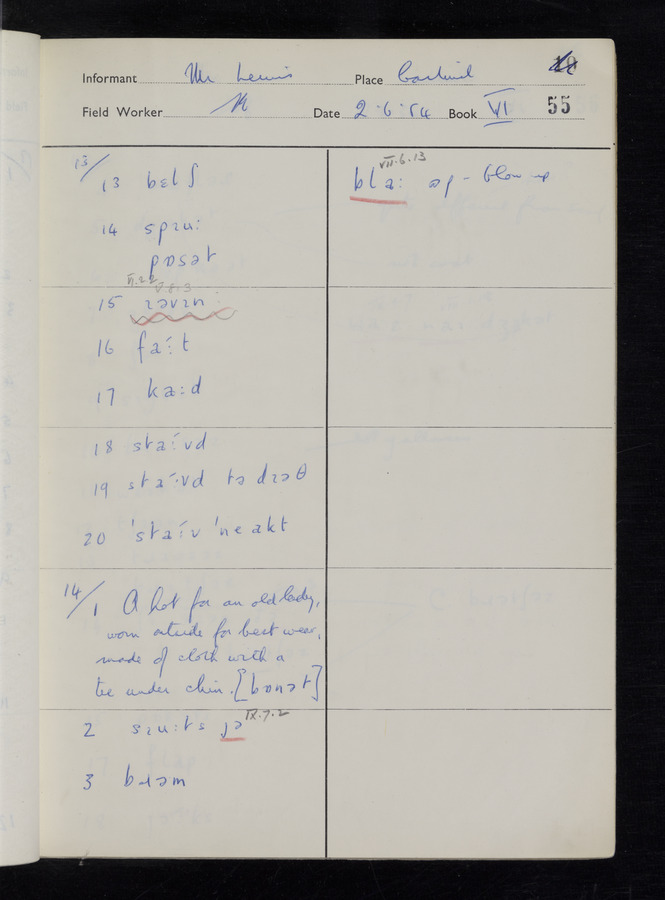 Informant Mr Lewis Place
Field Worker Date 2·6·54 Book VI 55
13/
13 bɛlʃ
14 spɹu:
pɒsət
VI.
15 ɹəvɹn
16 fa:t
17 ka:d
18 sta:vd
19 sta:vd tə dɹəθ
20 'sta:v 'neakt
14/
1 A hat for an old lady,
worn outside for best wear,
made of cloth with a
tie under chin. [bɒnət]
2 sɹu:ts jə IX.7.2
3 bɹəm
VII.6.13
bla: əp - blow up